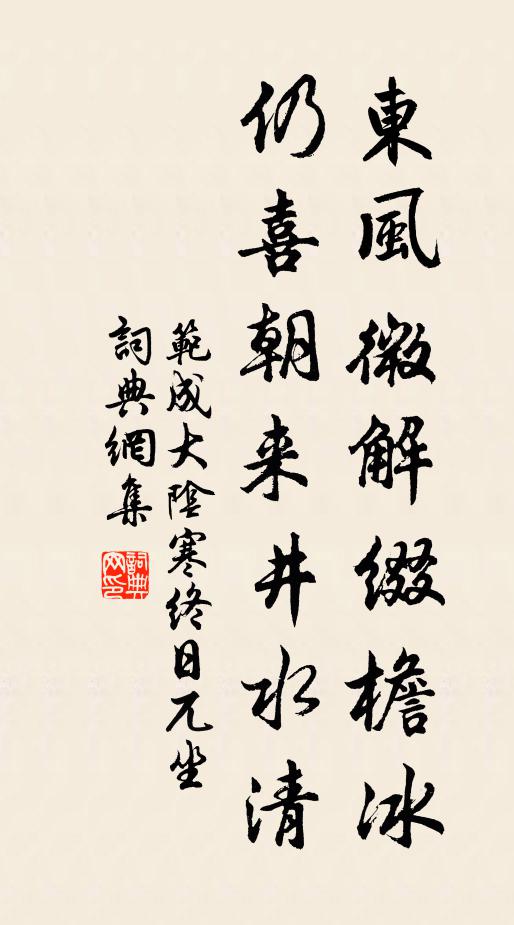 東風微解綴檐冰
仍喜朝来井水清
範成大陰寒終日兀坐
詞典網集
詞典网印